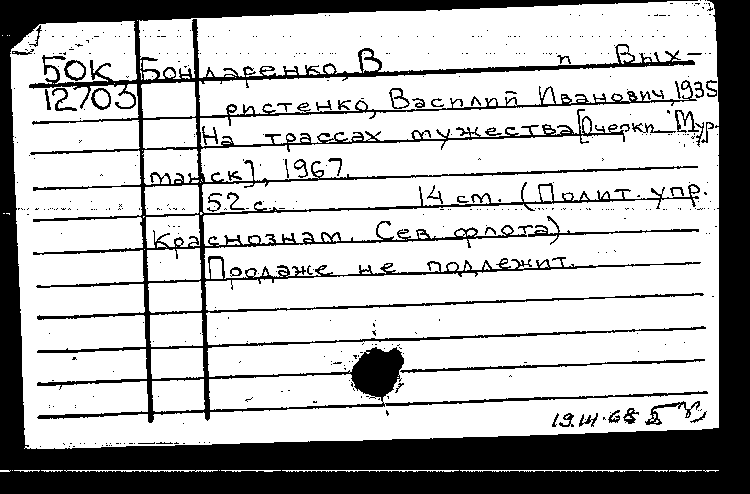 БОК Бондаренко, В п Вых-
12703 ристенко, Василий Иванович, 1935
На трассах мужества [Очерки Мур-
манск], 1967.
52 с. 14 см. (Полит. упр.
Краснознам. Сев. флота).
Продаже не подлежит.
19.III.68